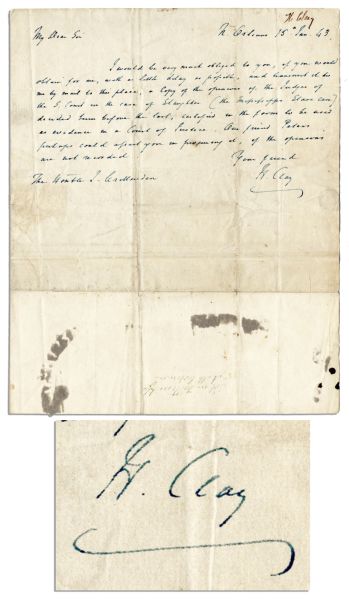 H. Clay
My Dear Sir N. Orleans 15h Jan. 43.
I would be very much obliged to you, if you would
obtain for me, with as little delay as possible, and transmit it to
me by mail to this place, a Copy of the opinions of the Judges of
the S. Court in the case of Slaughter (the Mississippi Slave case)
decided term before the last, certified in the form to be used
as evidence in a Court of Justice. Our friend Peters
perhaps could assist you in procuring it, if the opinions
are not recorded.
Your friend
H. Clay
The Honble J. Crittenden
H. Clay